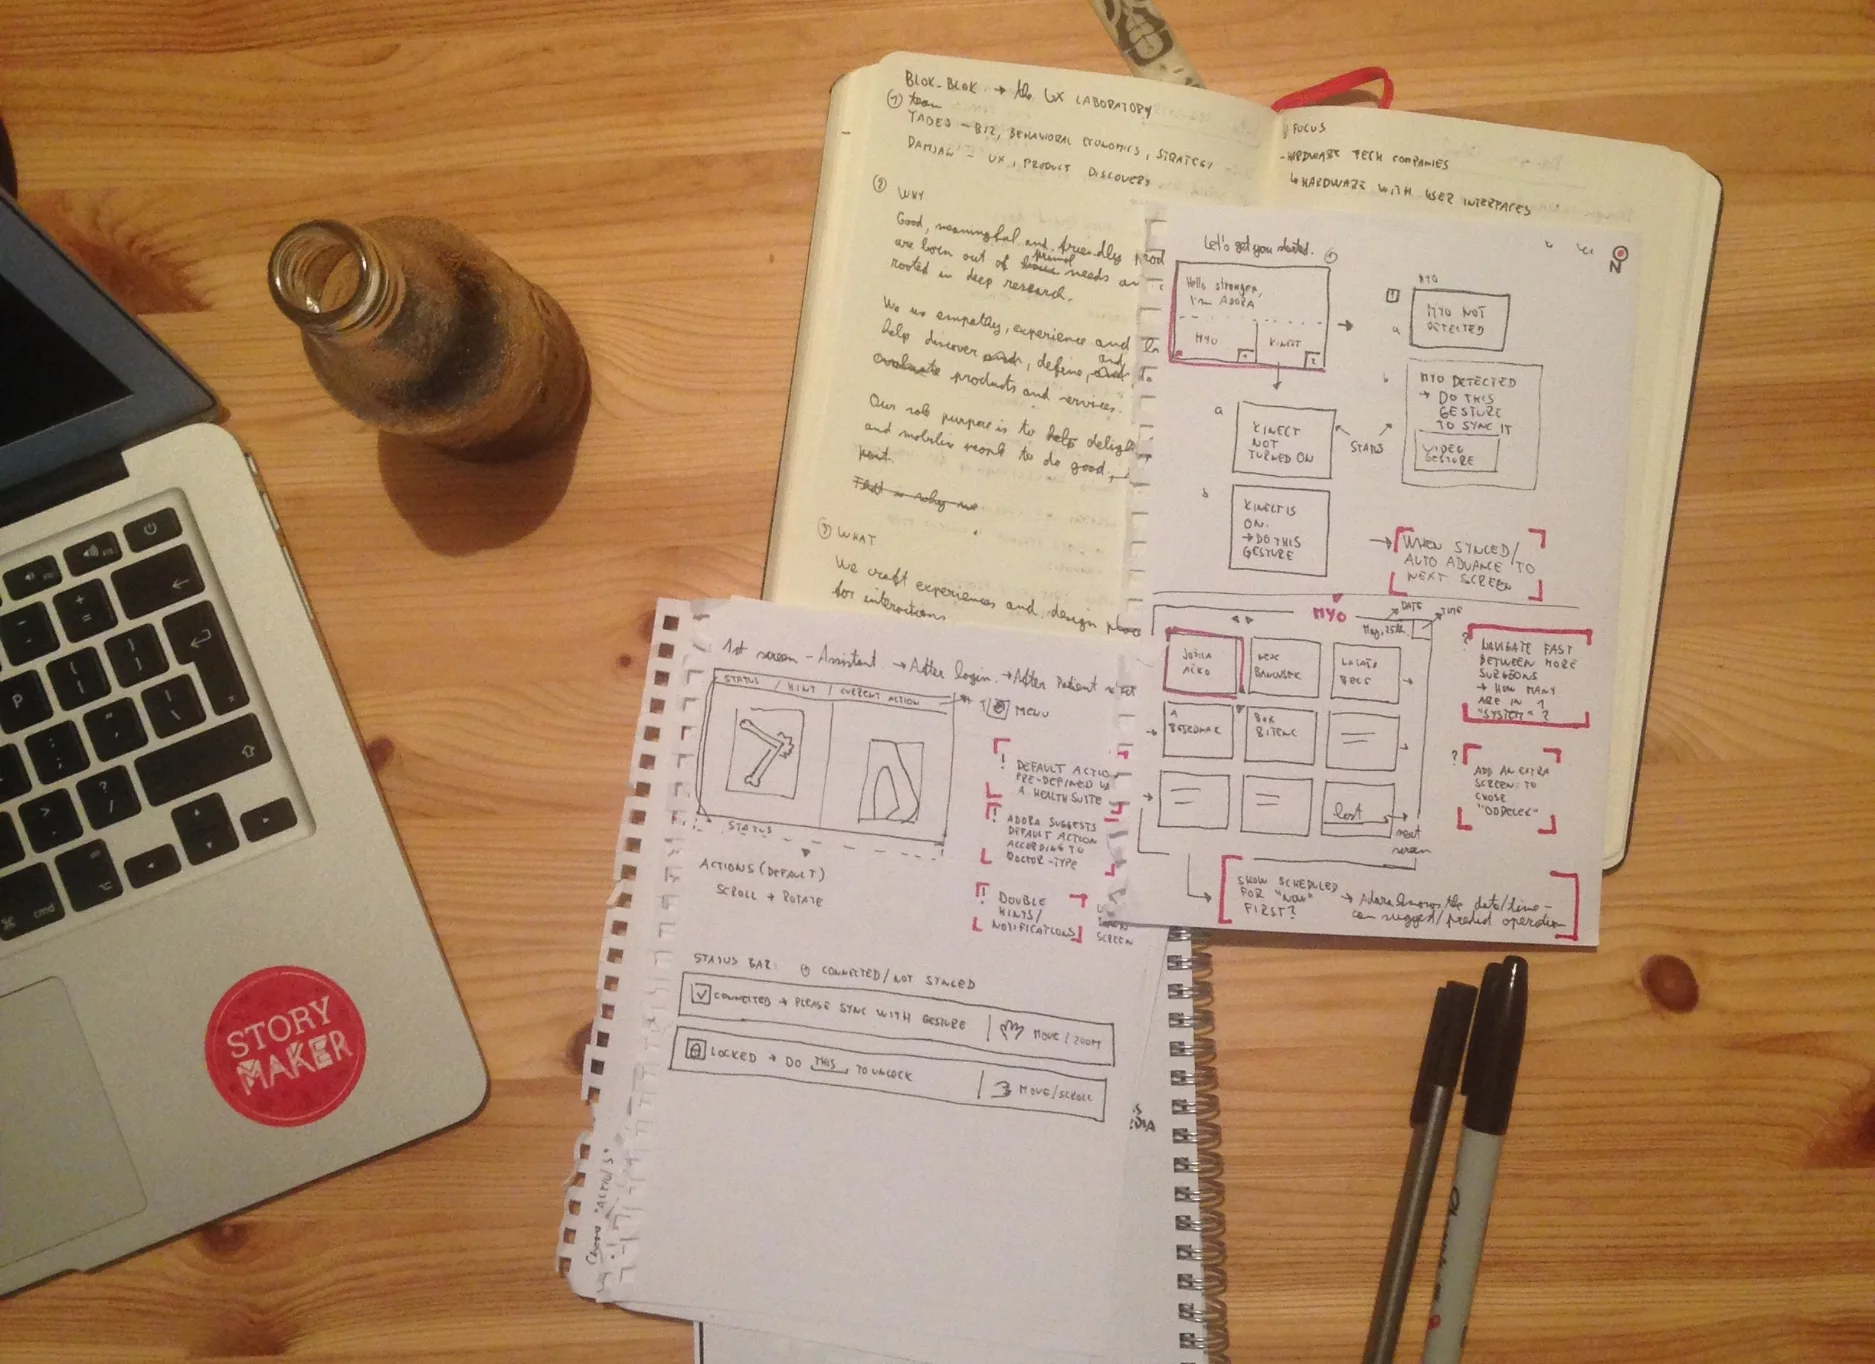 BLOK-BLOK → the UX LABORATORY
① team
TADEJ - BIZ, BEHAVIORAL ECONOMICS, STRATEGY
DAMJAN - UX, PRODUCT DISCOVERY
② WHY
Good, meaningful and friendly prod
are born out of primal needs an
rooted in deep research.
We us empathy, experience and
help discover, define, and
evaluate products and services.
Our purpose is to help delight
and mobilize people to do good,
That is why we
③ WHAT
We craft experiences and design
for interactions.
FOCUS
- HARDWARE TECH COMPANIES
↳ HARDWARE WITH USER INTERFACES
Let's get you started.
Hello stranger,
I'm ADORA
MYO 1
KINECT 2
1 MYO
a
MYO NOT
DETECTED
b
MYO DETECTED
→ DO THIS
GESTURE
TO SYNC IT
VIDEO
GESTURE
STATUS
a
KINECT
NOT
TURNED ON
b
KINECT IS
ON.
→ DO THIS
GESTURE
→ WHEN SYNCED/
AUTO ADVANCE TO
NEXT SCREEN
N
MYO
DATE
TIME
May, 25th
JOŽICA
AČKO
last
next
screen
? NAVIGATE FAST
BETWEEN MORE
SURGEONS
→ HOW MANY
ARE IN 1
"SYSTEM"?
? ADD AN EXTRA
SCREEN: TO
CHOSE
"ODDELEK"
SHOW SCHEDULED
FOR "NOW"
FIRST?
→ Adora knows the date/time -
can suggest/predict operation
1st screen - Assistant → After login → After Patient
STATUS / HINT / CURRENT ACTION
MENU
STATUS
! DEFAULT ACTIO
PRE-DEFINED
A HEALTH SUITE
! ADORA SUGGESTS
DEFAULT ACTION
ACCORDING TO
DOCTOR-TYPE
! DOUBLE
HINTS/
NOTIFICATIONS
SCREEN
ACTIONS (DEFAULT)
SCROLL → ROTATE
STATUS BAR: CONNECTED/NOT SYNCED
CONNECTED → PLEASE SYNC WITH GESTURE | MOVE/ZOOM
LOCKED → DO THIS TO UNLOCK | MOVE/SCROLL
STORY
MAKER
cmd